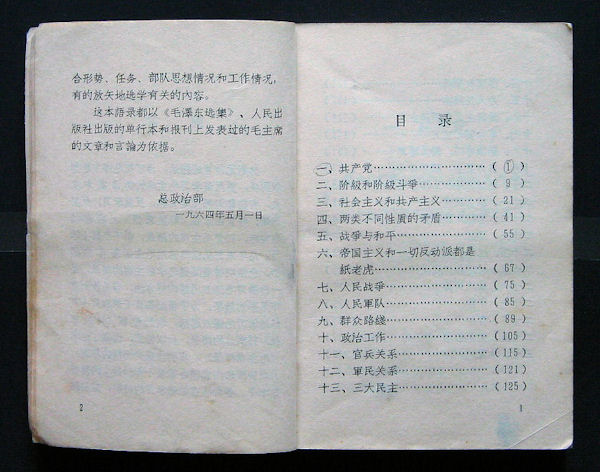 合形势、任务、部队思想情况和工作情况,
有的放矢地选学有关的內容。
这本語录都以《毛澤东选集》、人民出
版社出版的单行本和报刊上发表过的毛主席
的文章和言論为依据。
总政治部
一九六四年五月一日
2
目 录
一、共产党…………………………( 1 )
二、阶級和阶級斗爭………………( 9 )
三、社会主义和共产主义…………( 21 )
四、两类不同性质的矛盾…………( 41 )
五、战爭与和平……………………( 55 )
六、帝国主义和一切反动派都是
紙老虎…………………………( 67 )
七、人民战爭………………………( 75 )
八、人民軍队………………………( 85 )
九、群众路綫………………………( 89 )
十、政治工作………………………(105)
十一、官兵关系……………………(115)
十二、軍民关系……………………(121)
十三、三大民主……………………(125)
1